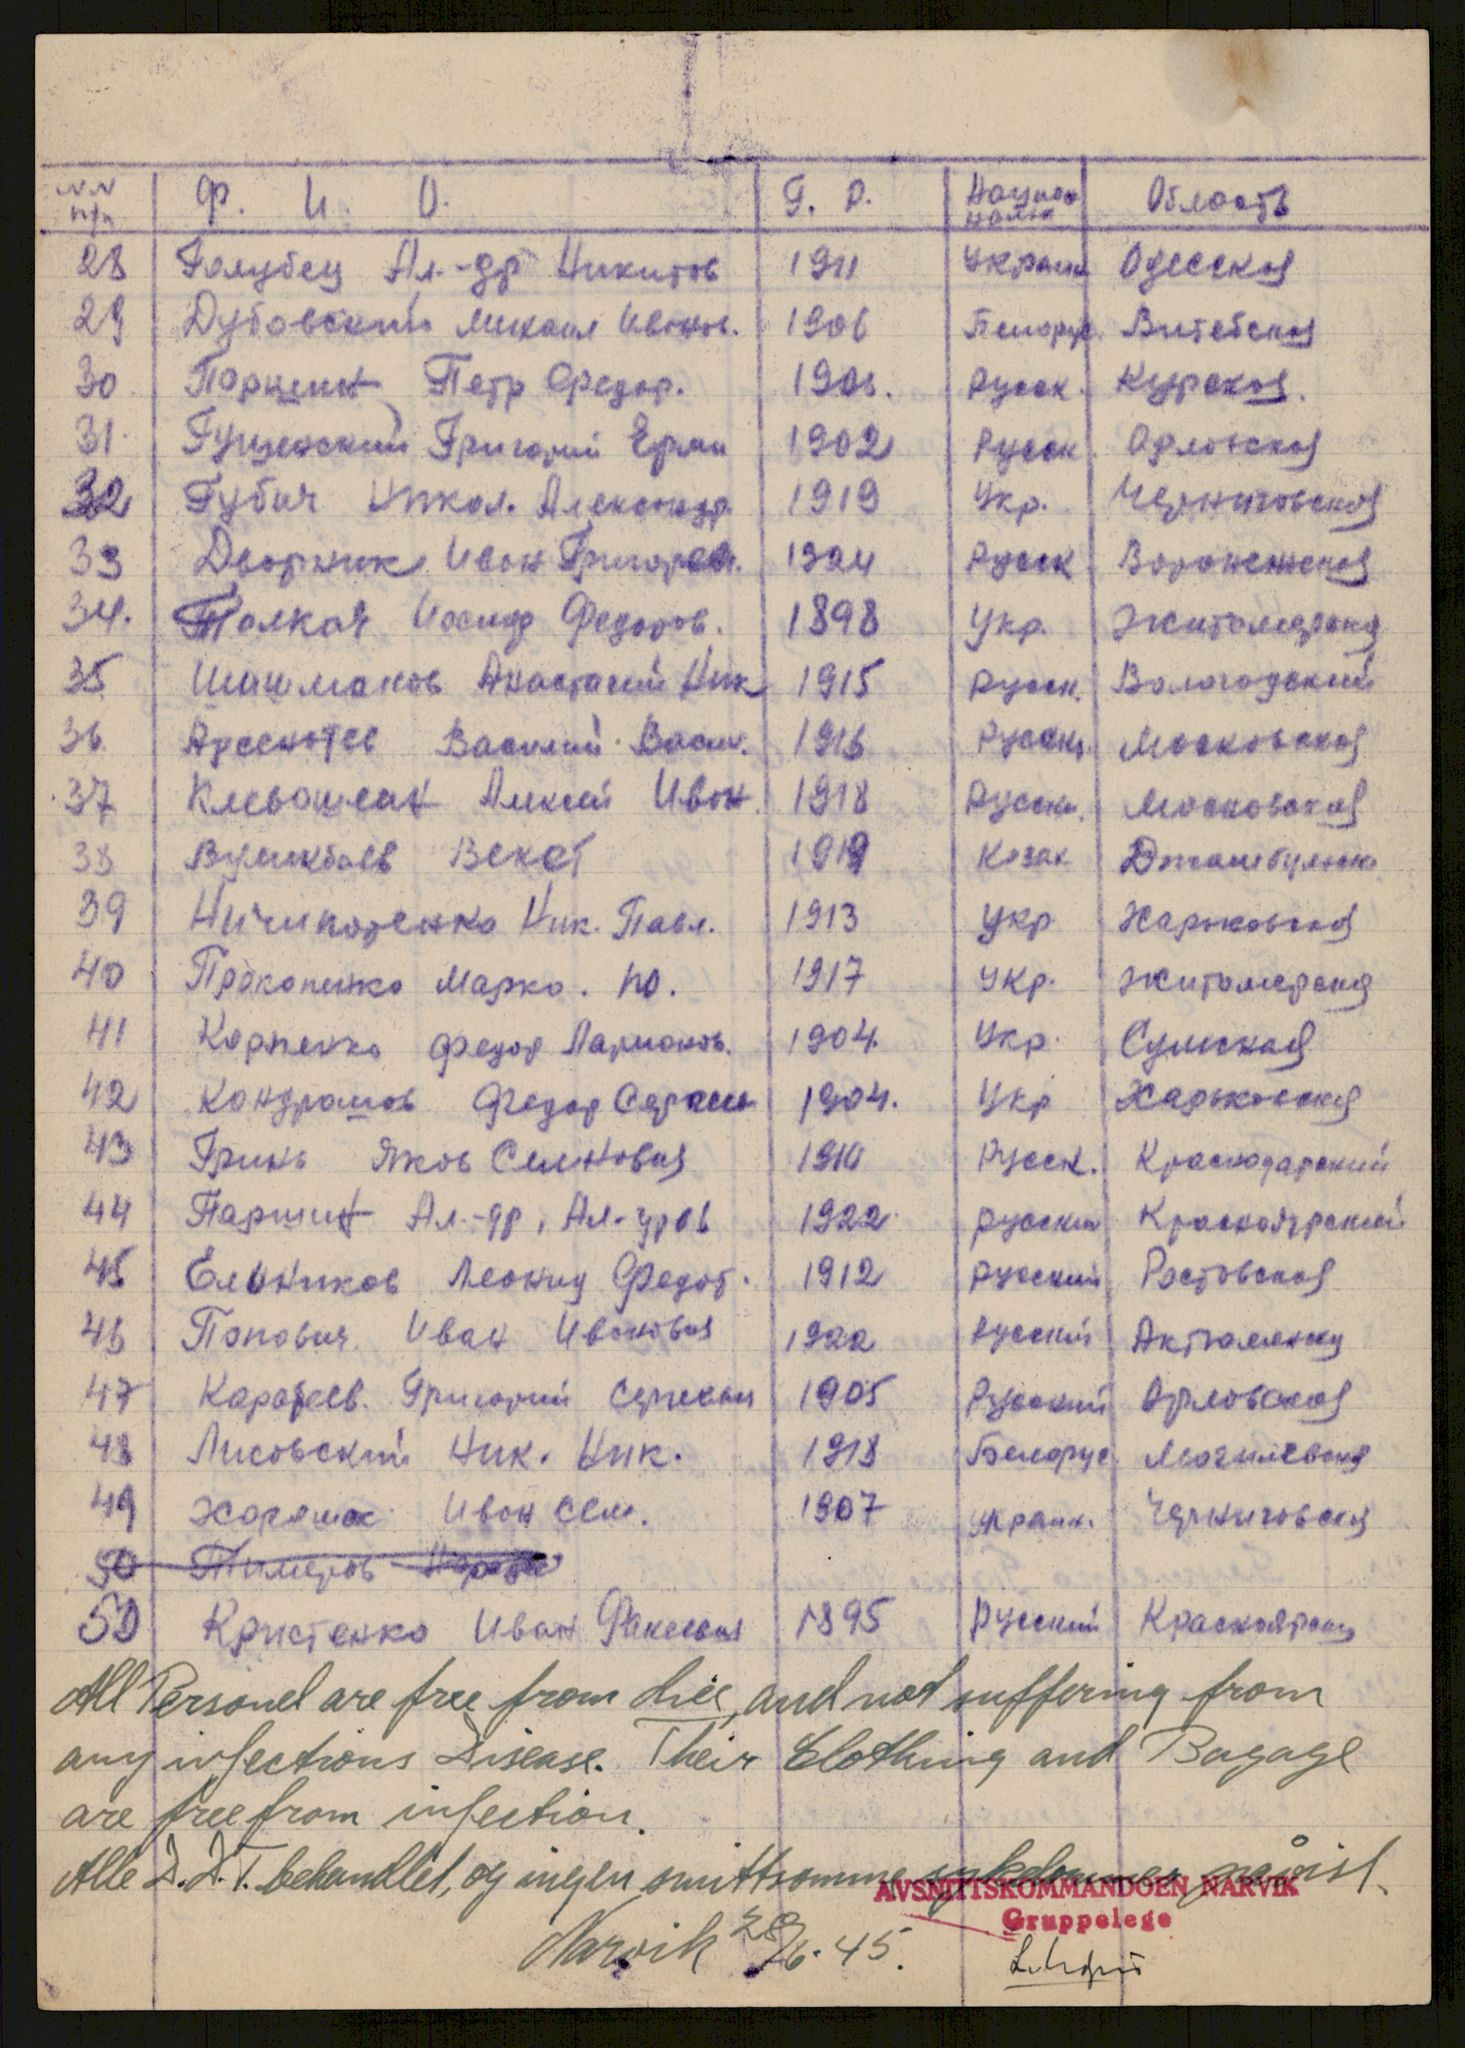 №№ п/п Ф. И. О. Г. Р. Национ нальн Область
28 Голубец Ал.-др Никитов 1911 Украин Одесская
29 Дубовский Михаил Иванов. 1906 Белорус. Витебская
30 Паршин Петр Федор. 1905. Русск. Курская.
31 Гущенский Григорий Ефим 1902 Русск. Орловская
32 Губич Никол. Александр. 1919 Укр. Черниговская
33 Дворник Иван Григорев. 1924 Русск Воронежская
34. Толкач Иосиф Федоров. 1898 Укр. Житомерская
35 Шашмаков Анастасий Ник 1915 Русск. Вологодский
36 Василий Васил. 1916 Русски. Московская
37 Алексей Иван. 1918 Русски. Московская
38 Бекет 1919 Казах Джамбульск
39 Ничипоренко Ник. Павл. 1913 Укр Харьковская
40 Прокопенко Марко. Ю. 1917 Укр. Житомерская
41 Карпенко Федор Ларионов. 1904. Укр. Сумская
42 Кондрашов Федор Сергееев 1904. Укр Харьковская
43 Гринь Яков Семнович 1910 Русск. Краснодарский
44 Паршин Ал.-др, Ал-дров 1922 русский Красноярский
45 Ельников Леонид Федот. 1912 русский Ростовская
46 Попович. Иван Иванович 1922 русский Актюлинск
47 Каратеев. Григорий Сергеевич 1905 Русский Орловская
48 Лисовский Ник. Ник. 1918 Белорус. Могилевская
49 Иван Сем. 1907 украин. Черниговская
50 Тимеров
50 Кристенко Иван 1895 Русский Красноярск
All Personel are free from lice, and not suffering from
any infections Disease. Their Clothing and Bagage
are free from infection.
Alle D.D.T. behandlet, og ingen smittsomme sykdommer påvist.
AVSNITTSKOMMANDOEN NARVIK
Gruppelege
Narvik 28/6.45.